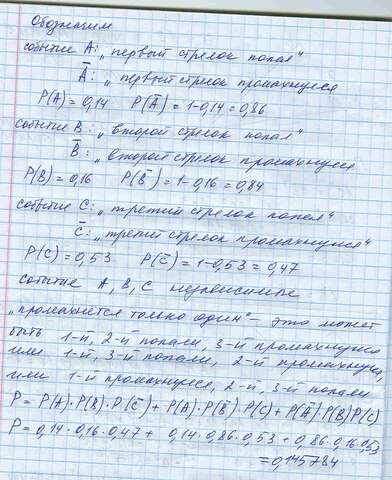 Обозначим
событие A: „первый стрелок попал“
Ā: „первый стрелок промахнулся
P(A) = 0,14 P(Ā) = 1-0,14 = 0,86
событие B: „второй стрелок попал“
B̄: „второй стрелок промахнулся
P(B) = 0,16 P(B̄) = 1-0,16 = 0,84
событие C: „третий стрелок попал“
C̄: „третий стрелок промахнулся“
P(C) = 0,53 P(C̄) = 1-0,53 = 0,47
События A, B, C независимые
„промахнётся только один“ - это может
быть 1-й, 2-й попали, 3-й промахнулся
или 1-й, 3-й попали, 2-й промахнулся
или 1-й промахнулся, 2-й 3-й попали
P = P(A)·P(B)·P(C̄) + P(A)·P(B̄)·P(C) + P(Ā)·P(B)P(C)
P = 0,14·0,16·0,47 + 0,14·0,86·0,53 + 0,86·0,16·0,53
= 0,145784